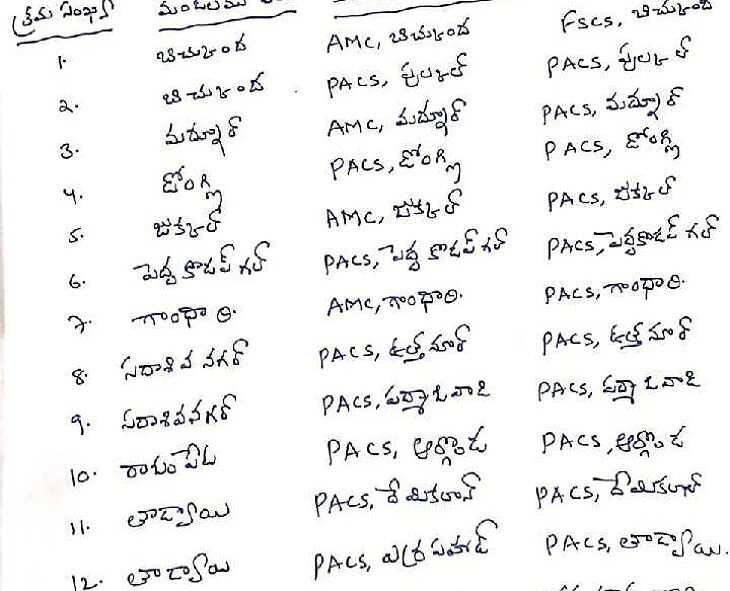 క్రమ సంఖ్య మండలము
1. బిచ్కుంద AMC, బిచ్కుంద FSCS, బిచ్కుంద
2. బిచ్కుంద PACS, పుల్కల్ PACS, పుల్కల్
3. మద్నూర్ AMC, మద్నూర్ PACS, మద్నూర్
4. డోంగ్లి PACS, డోంగ్లి PACS, డోంగ్లి
5. జుక్కల్ AMC, జుక్కల్ PACS, జుక్కల్
6. పెద్ద కొడప్ గల్ PACS, పెద్ద కొడప్ గల్ PACS, పెద్దకొడప్ గల్
7. గాంధారి. AMC, గాంధారి. PACS, గాంధారి.
8. సదాశివ నగర్ PACS, ఉత్తనూర్ PACS, ఉత్తనూర్
9. సదాశివనగర్ PACS, పద్మాజివాడి PACS, పద్మాజివాడి
10. రాజంపేట PACS, ఆర్గొండ PACS, ఆర్గొండ
11. తాడ్వాయి PACS, దేమికలాన్ PACS, దేమికలాన్
12. తాడ్వాయి PACS, ఎర్రపహాడ్ PACS, తాడ్వాయి.